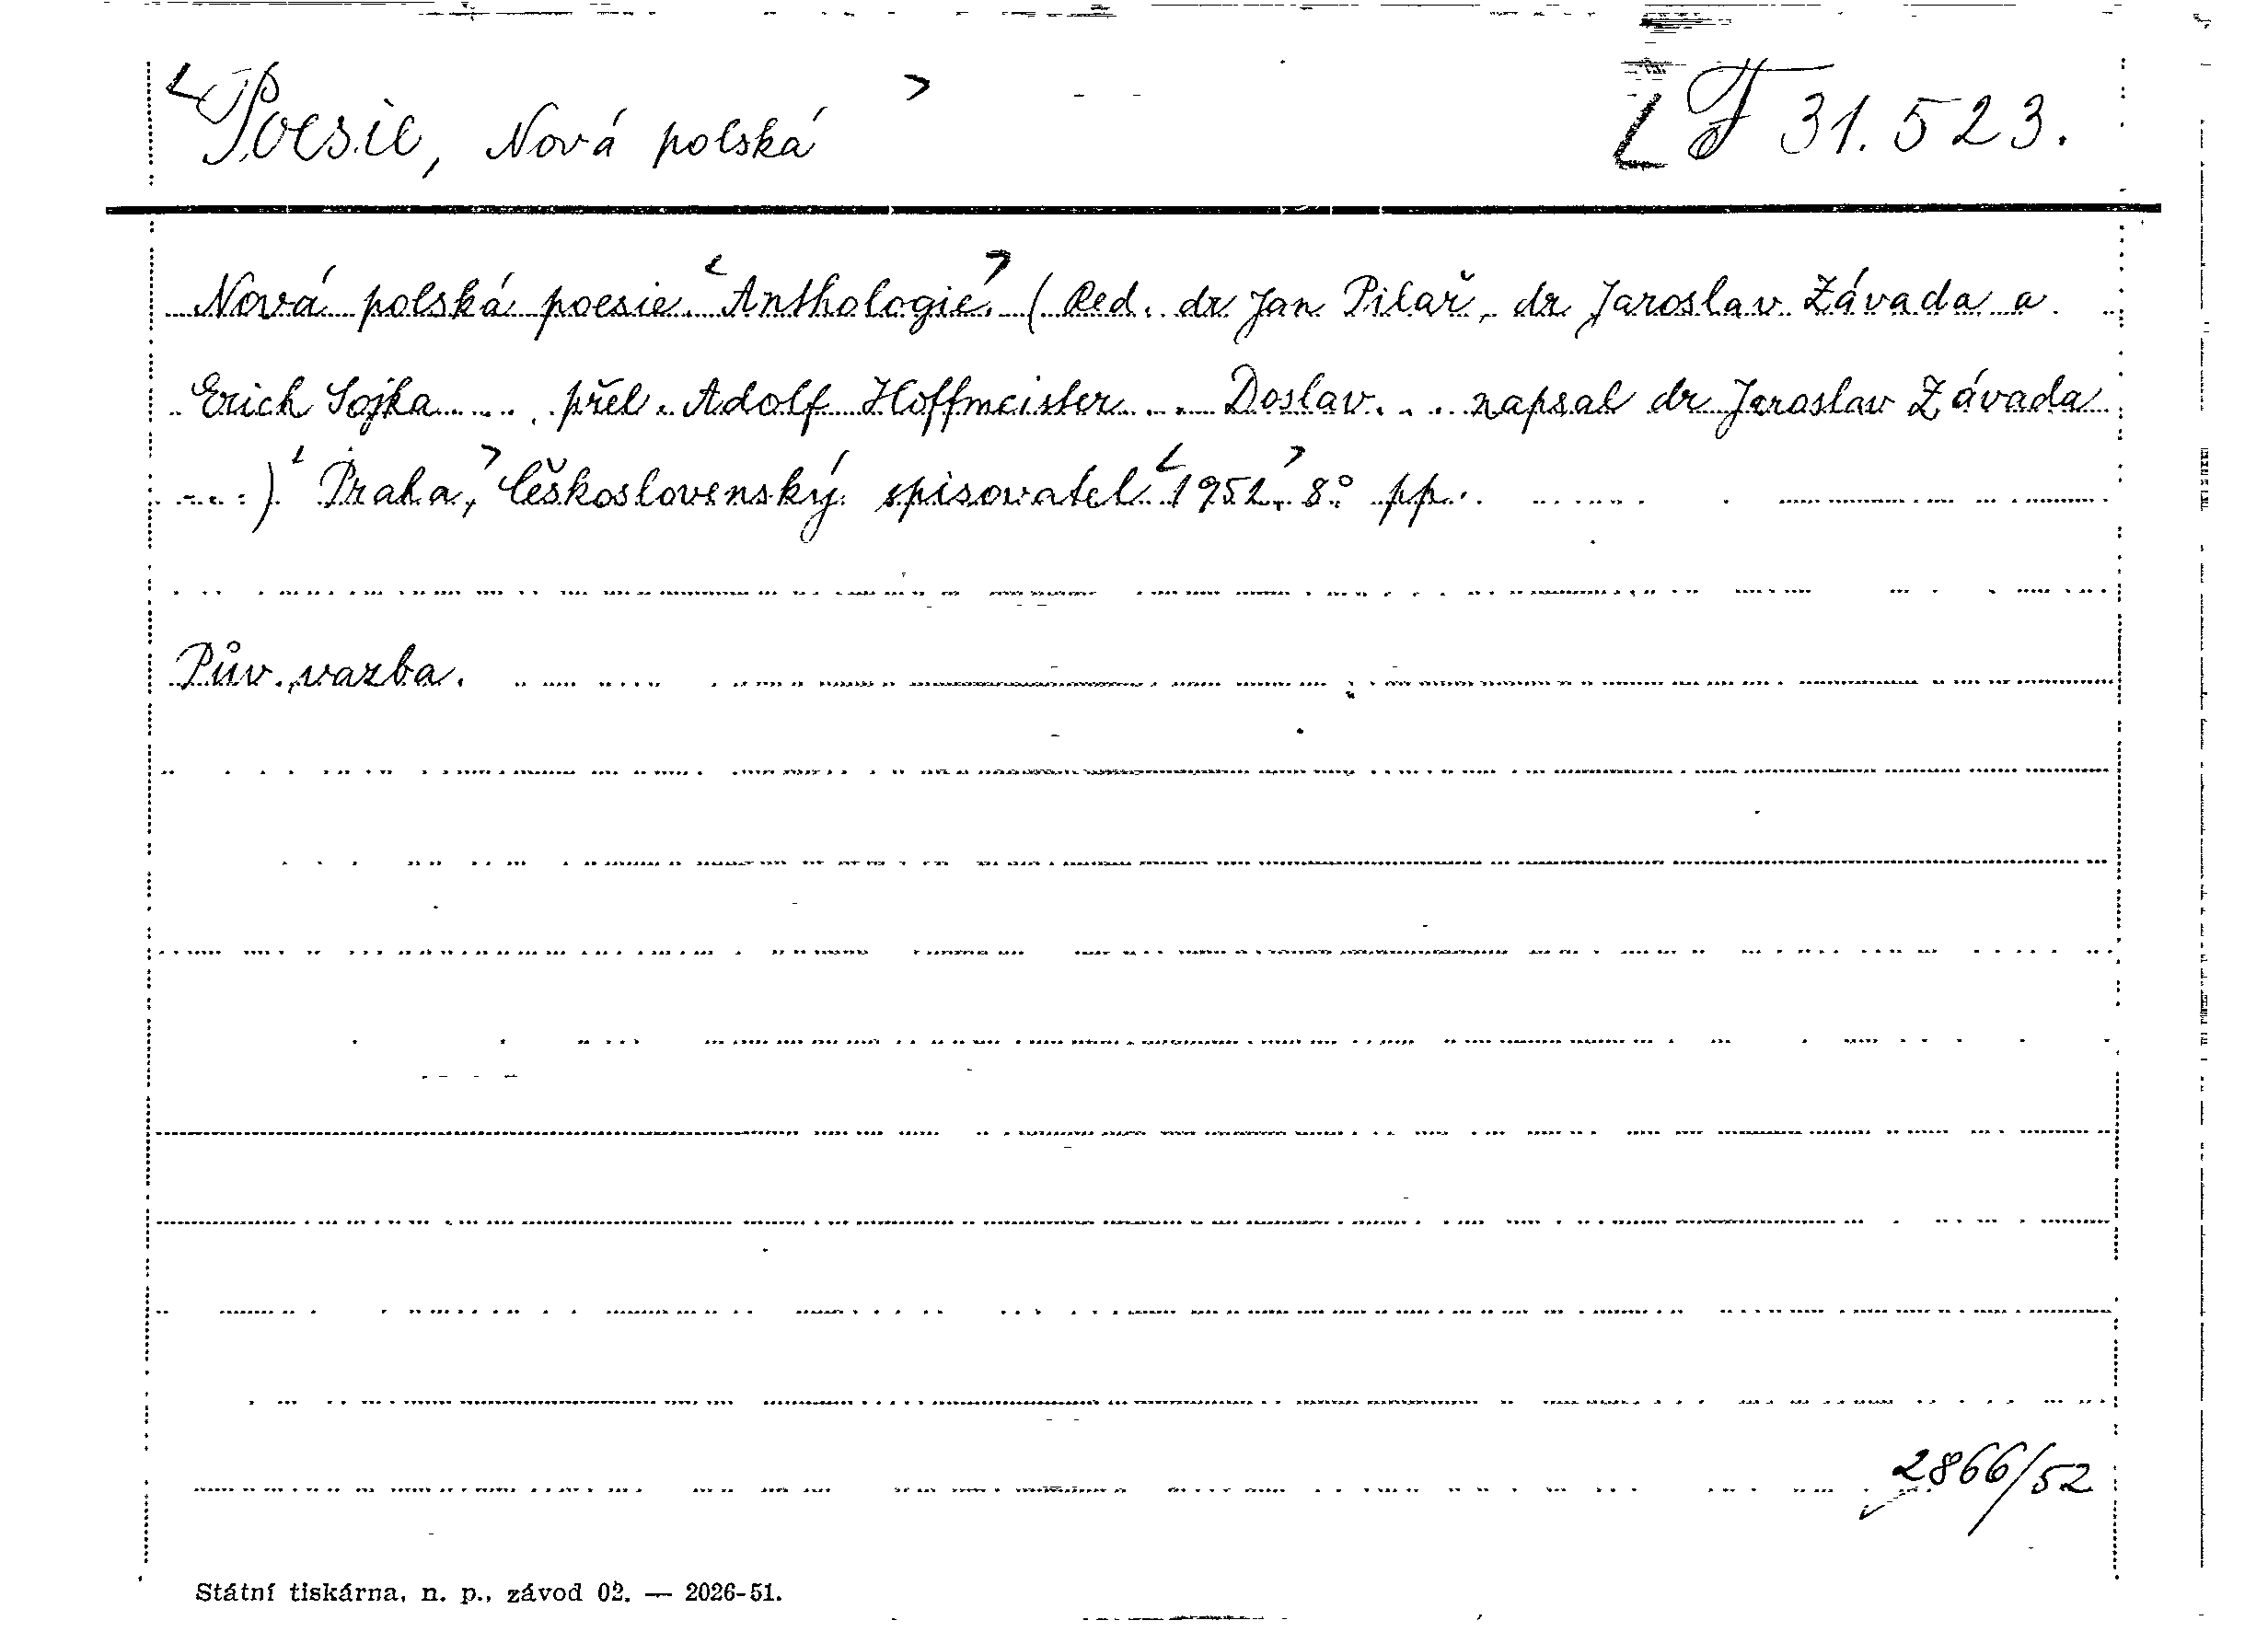 <Poesie, Nová polská> [F 31.523.
Nová polská poesie. <Anthologie.> (Red. dr Jan Pilař, dr Jaroslav Závada a
Erich Sojka ... přel. Adolf Hoffmeister .. Doslov ... napsal dr Jaroslav Závada
...) <Praha,> Československý spisovatel <1952.> 8° pp.
Pův. vazba.
2866/52
Státní tiskárna, n. p., závod 02. — 2026-51.